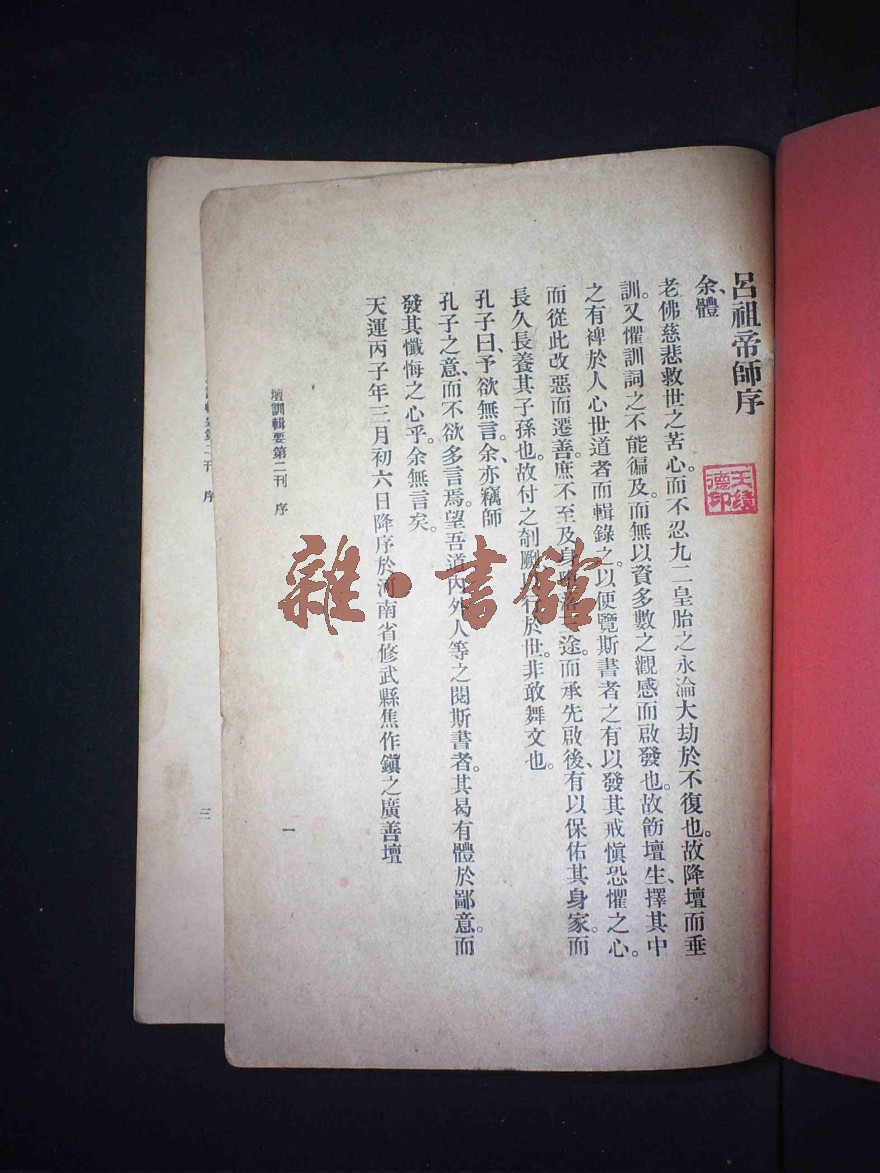 呂祖帝師序
余、體
老佛慈悲救世之苦心。而不忍九二皇胎之永淪大劫於不復也。故降壇而垂
訓。又懼訓詞之不能徧及。而無以資多數之觀感而啟發也。故飭壇生、擇其中
之有裨於人心世道者而輯錄之。以便覽斯書者之有以發其戒愼恐懼之心。
而從此改惡而遷善。庶不至及身途。而承先啟後、有以保佑其身家。而
長久長養其子孫也。故付之剞劂行於世。非敢舞文也。
孔子曰、予欲無言。余、亦竊師
孔子之意、而不欲多言焉。望吾道內外人等之閱斯書者。其曷有體於鄙意。而
發其懺悔之心乎。余無言矣。
天運丙子年三月初六日降序於河南省修武縣焦作鎭之廣善壇
壇訓輯要第二刊 序
一
第二刊 序
三
王績
德印
雜·書館